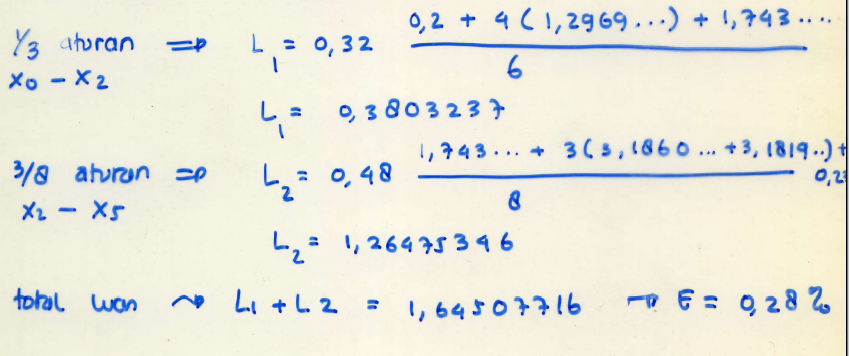 1/3 aturan ⇒ L1 = 0,32 (0,2 + 4(1,2969...) + 1,743....) / 6
x0 - x2
L1 = 0,3803237
3/8 aturan ⇒ L2 = 0,48 (1,743... + 3(3,1860... + 3,1819..) + 0,23) / 8
x2 - x5
L2 = 1,26475346
total luas ⇝ L1 + L2 = 1,64507716 → E = 0,28%